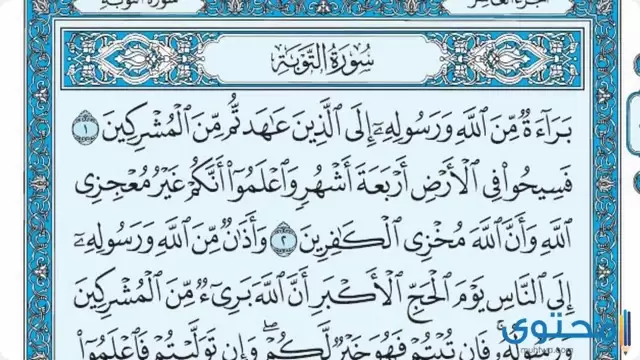 سورة التوبة
الجزء العاشر
سُورَةُ التَّوْبَةِ
بَرَآءَةٌ مِّنَ ٱللَّهِ وَرَسُولِهِۦٓ إِلَى ٱلَّذِينَ عَٰهَدتُّم مِّنَ ٱلْمُشْرِكِينَ ١
فَسِيحُوا۟ فِى ٱلْأَرْضِ أَرْبَعَةَ أَشْهُرٍ وَٱعْلَمُوٓا۟ أَنَّكُمْ غَيْرُ مُعْجِزِى
ٱللَّهِ وَأَنَّ ٱللَّهَ مُخْزِى ٱلْكَٰفِرِينَ ٢ وَأَذَٰنٌ مِّنَ ٱللَّهِ وَرَسُولِهِۦٓ
إِلَى ٱلنَّاسِ يَوْمَ ٱلْحَجِّ ٱلْأَكْبَرِ أَنَّ ٱللَّهَ بَرِىٓءٌ مِّنَ ٱلْمُشْرِكِينَ
فَإِن تُبْتُمْ فَهُوَ خَيْرٌ لَّكُمْ ۖ وَإِن تَوَلَّيْتُمْ فَٱعْلَمُوٓا۟
محتوى